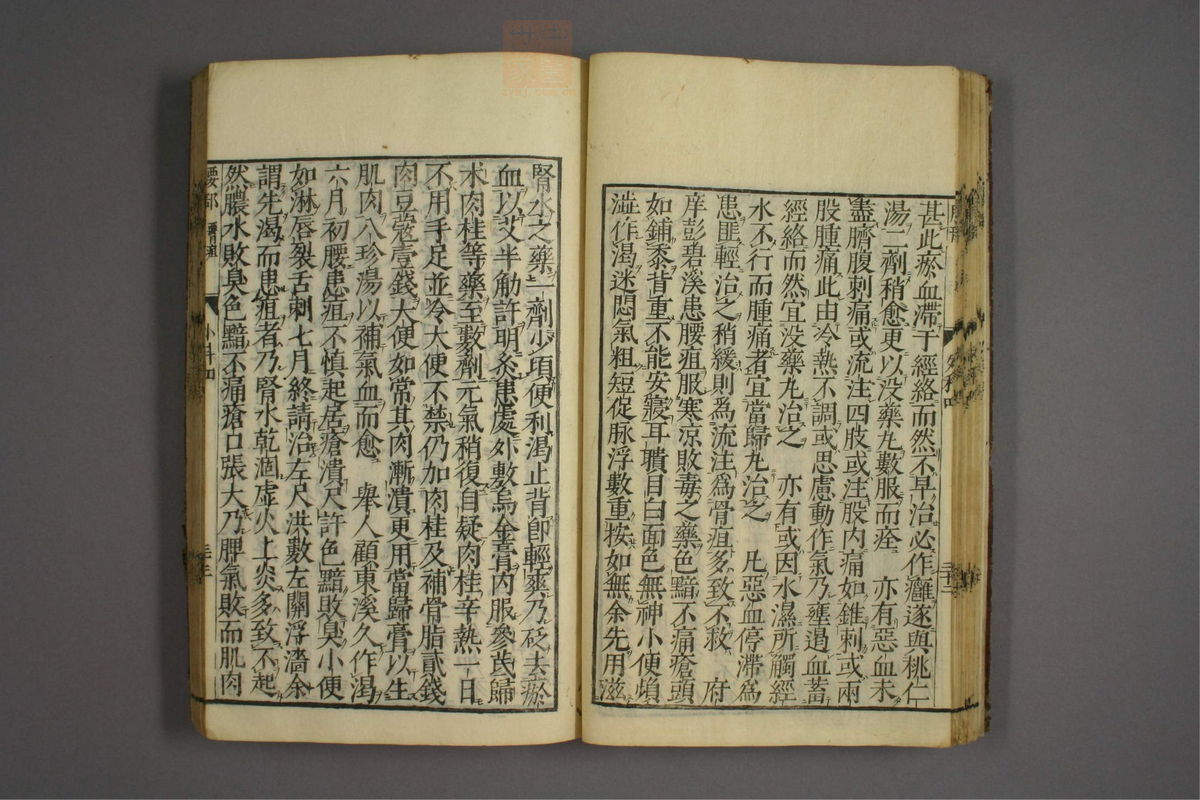 甚此瘀血滯于經絡而然不早治必作癰遂與桃仁
湯二劑稍愈更以没藥丸數服而痊　亦有惡血未
盡臍腹刺痛或流注四肢或注股内痛如錐刺或兩
股腫痛此由冷熱不調或思慮動作氣乃壅遏血蓄
經絡而然宜没藥丸治之　亦有或因水濕所觸經
水不行而腫痛者宜當歸丸治之　凡惡血停滯爲
患匪輕治之稍緩則爲流注爲骨疽多致不救　府
庠彭碧溪患腰疽服寒涼敗毒之藥色黯不痛瘡頭
如鋪黍背重不能安寢耳聵目白面色無神小便頻
澁作渴迷悶氣粗短促脉浮數重按如無余先用滋
腎水之藥一劑少頃便利渴止背即輕爽乃砭去瘀
血以艾半觔許明灸患處外敷烏金膏内服參芪歸
术肉桂等藥至數劑元氣稍復自疑肉桂辛熱一日
不用手足並冷大便不禁仍加肉桂及補骨脂貳錢
肉豆蔻壹錢大便如常其肉漸潰更用當歸膏以生
肌肉八珍湯以補氣血而愈　舉人顧東溪久作渴
六月初腰患疽不慎起居瘡潰尺許色黯敗臭小便
如淋唇裂舌刺七月終請治左尺洪數左關浮濇余
謂先渴而患疽者乃腎水乾涸虚火上炎多致不起
然膿水敗臭色黯不痛瘡口張大乃脾氣敗而肌肉
腰部